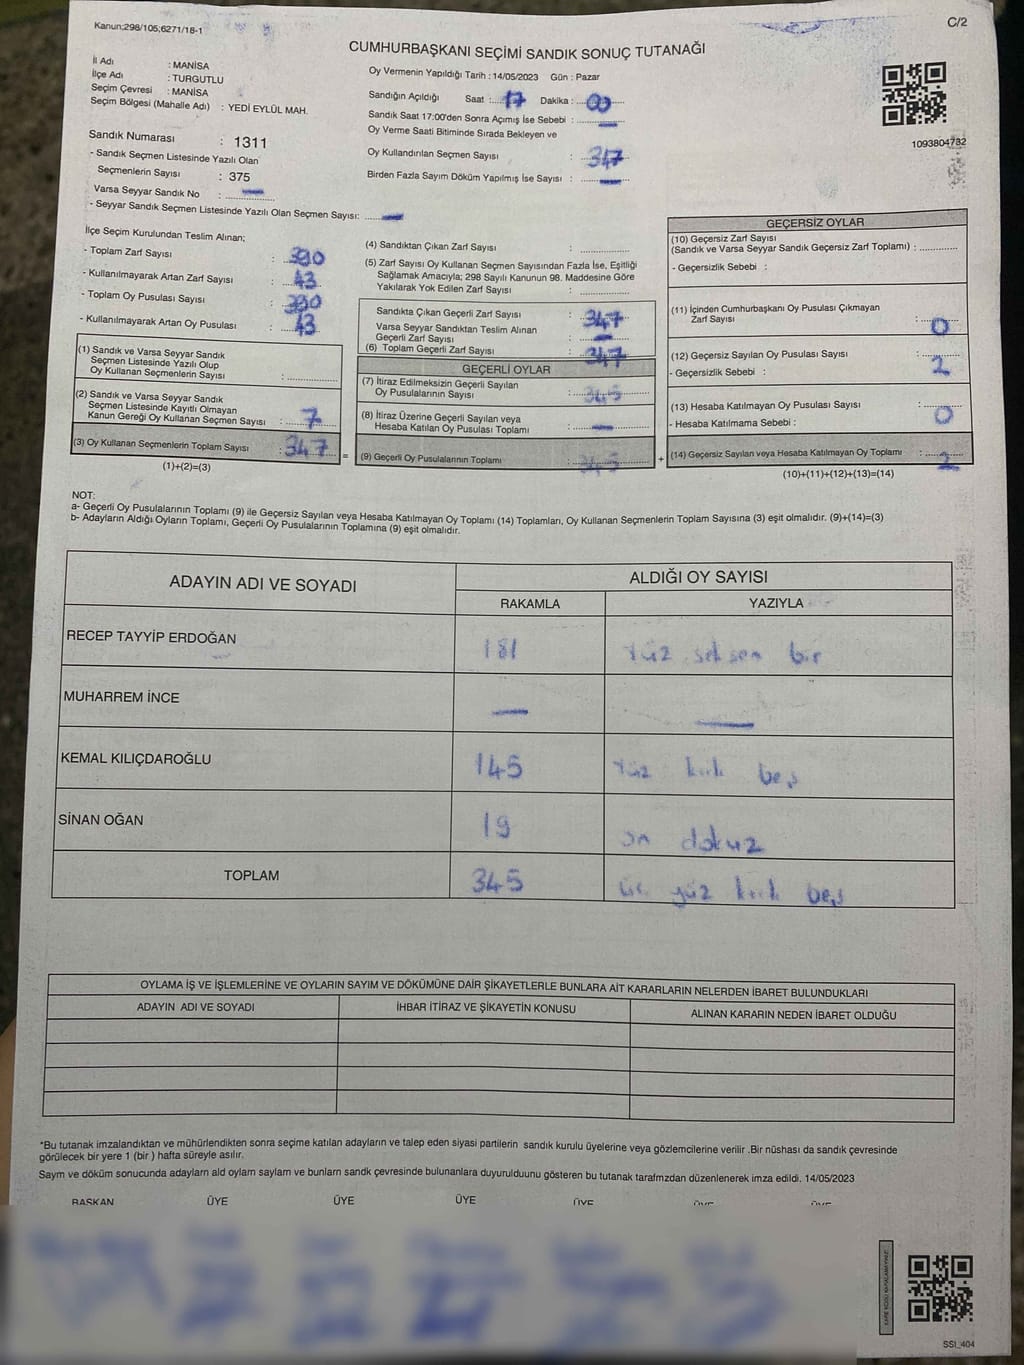 Kanun:298/105;6271/18-1
C/2
CUMHURBAŞKANI SEÇİMİ SANDIK SONUÇ TUTANAĞI
İl Adı : MANİSA
İlçe Adı : TURGUTLU
Seçim Çevresi : MANİSA
Seçim Bölgesi (Mahalle Adı) : YEDİ EYLÜL MAH.
Sandık Numarası : 1311
- Sandık Seçmen Listesinde Yazılı Olan
Seçmenlerin Sayısı : 375
Varsa Seyyar Sandık No : —
- Seyyar Sandık Seçmen Listesinde Yazılı Olan Seçmen Sayısı: —
Oy Vermenin Yapıldığı Tarih : 14/05/2023 Gün : Pazar
Sandığın Açıldığı Saat : 17 Dakika : 00
Sandık Saat 17:00'den Sonra Açımış İse Sebebi : —
Oy Verme Saati Bitiminde Sırada Bekleyen ve
Oy Kullandırılan Seçmen Sayısı : 347
Birden Fazla Sayım Döküm Yapılmış İse Sayısı : —
1093804782
İlçe Seçim Kurulundan Teslim Alınan;
- Toplam Zarf Sayısı : 390
- Kullanılmayarak Artan Zarf Sayısı : 43
- Toplam Oy Pusulası Sayısı : 390
- Kullanılmayarak Artan Oy Pusulası : 43
(1) Sandık ve Varsa Seyyar Sandık
Seçmen Listesinde Yazılı Olup
Oy Kullanan Seçmenlerin Sayısı :
(2) Sandık ve Varsa Seyyar Sandık
Seçmen Listesinde Kayıtlı Olmayan
Kanun Gereği Oy Kullanan Seçmen Sayısı : 7
(3) Oy Kullanan Seçmenlerin Toplam Sayısı : 347
(1)+(2)=(3)
=
(4) Sandıktan Çıkan Zarf Sayısı :
(5) Zarf Sayısı Oy Kullanan Seçmen Sayısından Fazla İse, Eşitliği
Sağlamak Amacıyla; 298 Sayılı Kanunun 98. Maddesine Göre
Yakılarak Yok Edilen Zarf Sayısı :
Sandıkta Çıkan Geçerli Zarf Sayısı : 347
Varsa Seyyar Sandıktan Teslim Alınan
Geçerli Zarf Sayısı : —
(6) Toplam Geçerli Zarf Sayısı : 347
GEÇERLİ OYLAR
(7) İtiraz Edilmeksizin Geçerli Sayılan
Oy Pusulalarının Sayısı : 345
(8) İtiraz Üzerine Geçerli Sayılan veya
Hesaba Katılan Oy Pusulası Toplamı : —
(9) Geçerli Oy Pusulalarının Toplamı : 345
+
GEÇERSİZ OYLAR
(10) Geçersiz Zarf Sayısı
(Sandık ve Varsa Seyyar Sandık Geçersiz Zarf Toplamı) :
- Geçersizlik Sebebi :
(11) İçinden Cumhurbaşkanı Oy Pusulası Çıkmayan
Zarf Sayısı : 0
(12) Geçersiz Sayılan Oy Pusulası Sayısı : 2
- Geçersizlik Sebebi :
(13) Hesaba Katılmayan Oy Pusulası Sayısı : 0
- Hesaba Katılmama Sebebi :
(14) Geçersiz Sayılan veya Hesaba Katılmayan Oy Toplamı : 2
(10)+(11)+(12)+(13)=(14)
NOT:
a- Geçerli Oy Pusulalarının Toplamı (9) ile Geçersiz Sayılan veya Hesaba Katılmayan Oy Toplamı (14) Toplamları, Oy Kullanan Seçmenlerin Toplam Sayısına (3) eşit olmalıdır. (9)+(14)=(3)
b- Adayların Aldığı Oyların Toplamı, Geçerli Oy Pusulalarının Toplamına (9) eşit olmalıdır.
ADAYIN ADI VE SOYADI ALDIĞI OY SAYISI
RAKAMLA YAZIYLA
RECEP TAYYİP ERDOĞAN 181 Yüz seksen bir
MUHARREM İNCE — —
KEMAL KILIÇDAROĞLU 145 Yüz kırk beş
SİNAN OĞAN 19 on dokuz
TOPLAM 345 üç yüz kırk beş
OYLAMA İŞ VE İŞLEMLERİNE VE OYLARIN SAYIM VE DÖKÜMÜNE DAİR ŞİKAYETLERLE BUNLARA AİT KARARLARIN NELERDEN İBARET BULUNDUKLARI
ADAYIN ADI VE SOYADI İHBAR İTİRAZ VE ŞİKAYETİN KONUSU ALINAN KARARIN NEDEN İBARET OLDUĞU
*Bu tutanak imzalandıktan ve mühürlendikten sonra seçime katılan adayların ve talep eden siyasi partilerin sandık kurulu üyelerine veya gözlemcilerine verilir .Bir nüshası da sandık çevresinde
görülecek bir yere 1 (bir ) hafta süreyle asılır.
Saym ve döküm sonucunda adaylarn ald oylam saylam ve bunlarn sandk çevresinde bulunanlara duyurulduunu gösteren bu tutanak tarafmzdan düzenlenerek imza edildi. 14/05/2023
BAŞKAN ÜYE ÜYE ÜYE ÜYE ÜYE ÜYE
SSI_404